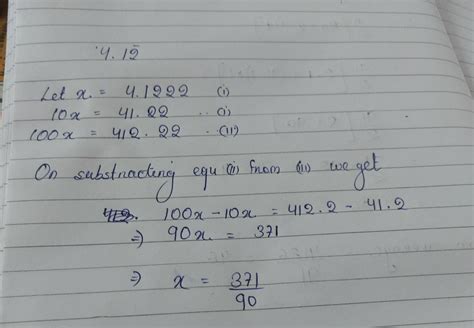 4.12̄
Let x = 4.1222 (i)
10x = 41.22 .. (i)
100x = 412.22 . (ii)
On substracting equ (i) from (ii) we get
100x - 10x = 412.2 - 41.2
⇒ 90x = 371
⇒ x = 371/90